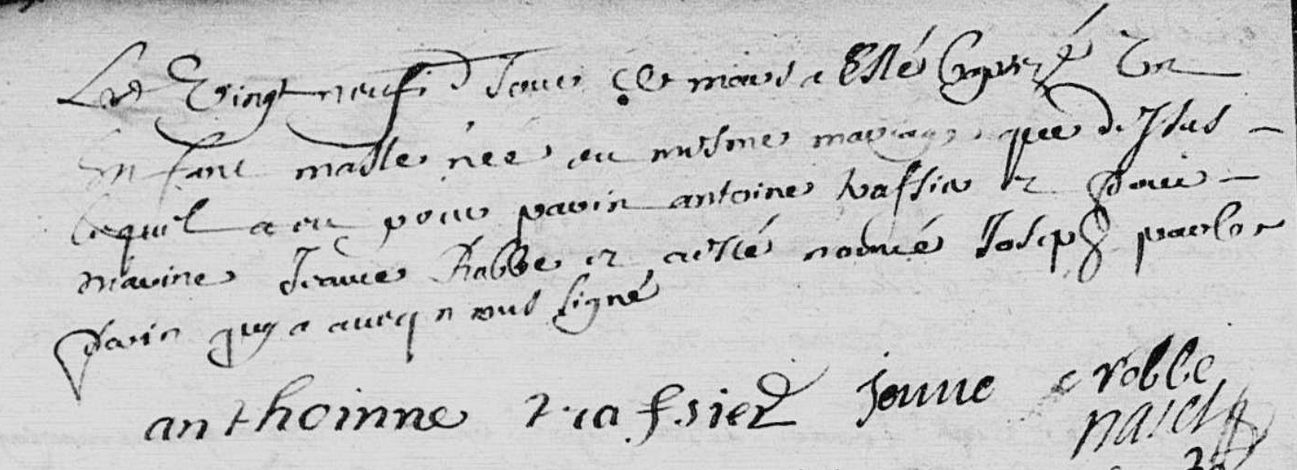 Le Vingt neuf Jour de mars a Esté Baptizé Un
Enfant masle née en mesme mariage que dessus
lequel a eu pour parin antoine traffier et pour
marine Jeanne Rabbe et a esté nomé Joseph par le
parin quy a avecq nous signé
anthoinne traffier Jenne robbe